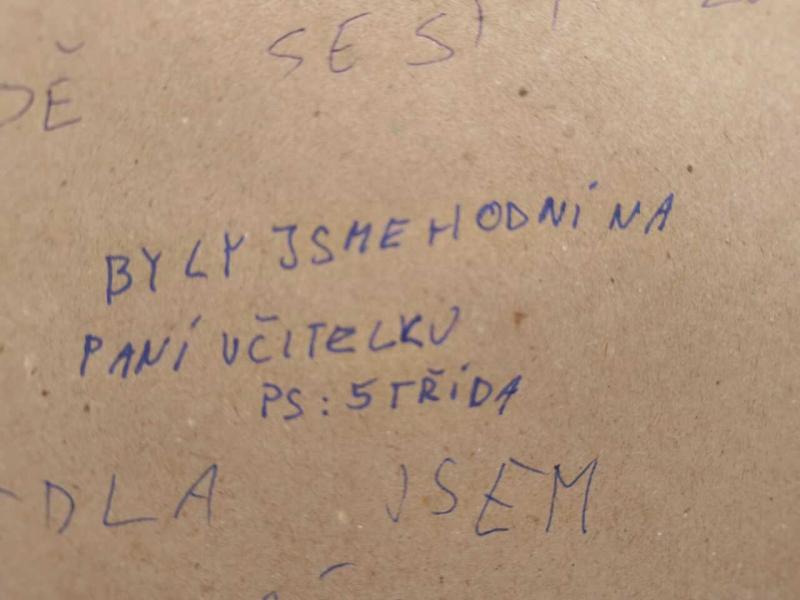 SEŠ
DĚ
BYLY JSME HODNÍ NA
PANÍ UČITELKU
PS: 5 TŘÍDA
DLA JSEM